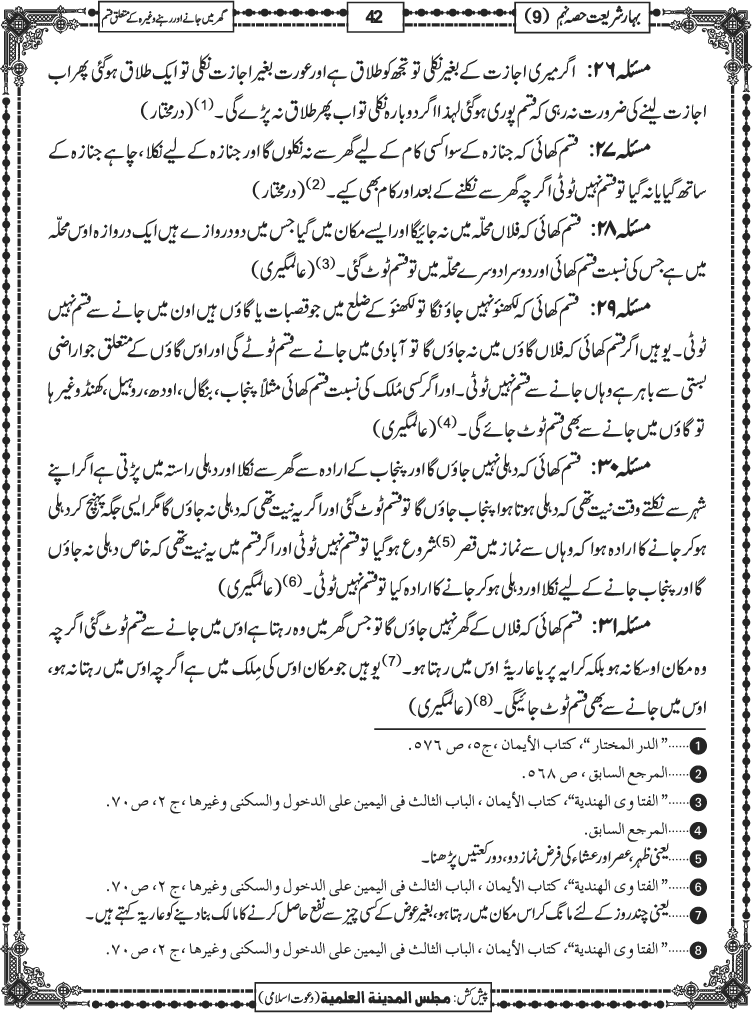 بہارِ شریعت حصہ نہم (9)
42
گھر میں جانے اور رہنے وغیرہ کے متعلق قسم
مسئلہ ۲۶: اگر میری اجازت کے بغیر نکلی تو تجھ کو طلاق ہے اور عورت بغیر اجازت نکلی تو ایک طلاق ہوگئی پھر اب
اجازت لینے کی ضرورت نہ رہی کہ قسم پوری ہوگئی لہٰذا اگر دوبارہ نکلی تو اب پھر طلاق نہ پڑے گی۔(1) (درمختار)
مسئلہ ۲۷: قسم کھائی کہ جنازہ کے سوا کسی کام کے لیے گھر سے نہ نکلوں گا اور جنازہ کے لیے نکلا، چاہے جنازہ کے
ساتھ گیا یا نہ گیا تو قسم نہیں ٹوٹی اگرچہ گھر سے نکلنے کے بعد اور کام بھی کیے۔(2) (درمختار)
مسئلہ ۲۸: قسم کھائی کہ فلاں محلّہ میں نہ جائیگا اور ایسے مکان میں گیا جس میں دو دروازے ہیں ایک دروازہ اوس محلّہ
میں ہے جس کی نسبت قسم کھائی اور دوسرا دوسرے محلّہ میں تو قسم ٹوٹ گئی۔(3) (عالمگیری)
مسئلہ ۲۹: قسم کھائی کہ لکھنؤ نہیں جاؤ نگا تو لکھنؤ کے ضلع میں جو قصبات یا گاؤں ہیں اون میں جانے سے قسم نہیں
ٹوٹی۔ یوہیں اگر قسم کھائی کہ فلاں گاؤں میں نہ جاؤں گا تو آبادی میں جانے سے قسم ٹوٹے گی اور اوس گاؤں کے متعلق جو اراضی
بستی سے باہر ہے وہاں جانے سے قسم نہیں ٹوٹی۔ اور اگر کسی مُلک کی نسبت قسم کھائی مثلاً پنجاب، بنگال، اودھ، روہیل، کھنڈ وغیرہا
تو گاؤں میں جانے سے بھی قسم ٹوٹ جائے گی۔(4) (عالمگیری)
مسئلہ ۳۰: قسم کھائی کہ دہلی نہیں جاؤں گا اور پنجاب کے ارادہ سے گھر سے نکلا اور دہلی راستہ میں پڑتی ہے اگر اپنے
شہر سے نکلتے وقت نیت تھی کہ دہلی ہوتا ہوا پنجاب جاؤں گا تو قسم ٹوٹ گئی اور اگر یہ نیت تھی کہ دہلی نہ جاؤں گا مگر ایسی جگہ پہنچ کر دہلی
ہو کر جانے کا ارادہ ہوا کہ وہاں سے نماز میں قصر(5) شروع ہو گیا تو قسم نہیں ٹوٹی اور اگر قسم میں یہ نیت تھی کہ خاص دہلی نہ جاؤں
گا اور پنجاب جانے کے لیے نکلا اور دہلی ہو کر جانے کا ارادہ کیا تو قسم نہیں ٹوٹی۔(6) (عالمگیری)
مسئلہ ۳۱: قسم کھائی کہ فلاں کے گھر نہیں جاؤں گا تو جس گھر میں وہ رہتا ہے اوس میں جانے سے قسم ٹوٹ گئی اگرچہ
وہ مکان اوسکا نہ ہو بلکہ کرایہ پر یا عاریۃً اوس میں رہتا ہو۔(7) یوہیں جو مکان اوس کی مِلک میں ہے اگرچہ اوس میں رہتا نہ ہو،
اوس میں جانے سے بھی قسم ٹوٹ جائیگی۔(8) (عالمگیری)
1 ......"الدر المختار"، كتاب الأيمان، ج٥، ص ٥٧٦.
2 ......المرجع السابق، ص ٥٦٨.
3 ......"الفتاوى الهندية"، كتاب الأيمان، الباب الثالث فى اليمين على الدخول والسكنى وغيرها، ج ٢، ص ٧٠.
4 ......المرجع السابق.
5 ......یعنی ظہر، عصر اور عشاء کی فرض نماز دو، دو رکعتیں پڑھنا۔
6 ......"الفتاوى الهندية"، كتاب الأيمان، الباب الثالث فى اليمين على الدخول والسكنى وغيرها، ج ٢، ص ٧٠.
7 ......یعنی چند روز کے لئے مانگ کر اس مکان میں رہتا ہو، بغیر عوض کے کسی چیز سے نفع حاصل کرنے کا مالک بنا دینے کو عاریۃ کہتے ہیں۔
8 ......"الفتاوى الهندية"، كتاب الأيمان، الباب الثالث فى اليمين على الدخول والسكنى وغيرها، ج ٢، ص ٧٠.
پیش کش: مجلس المدينة العلمية (دعوت اسلامی)